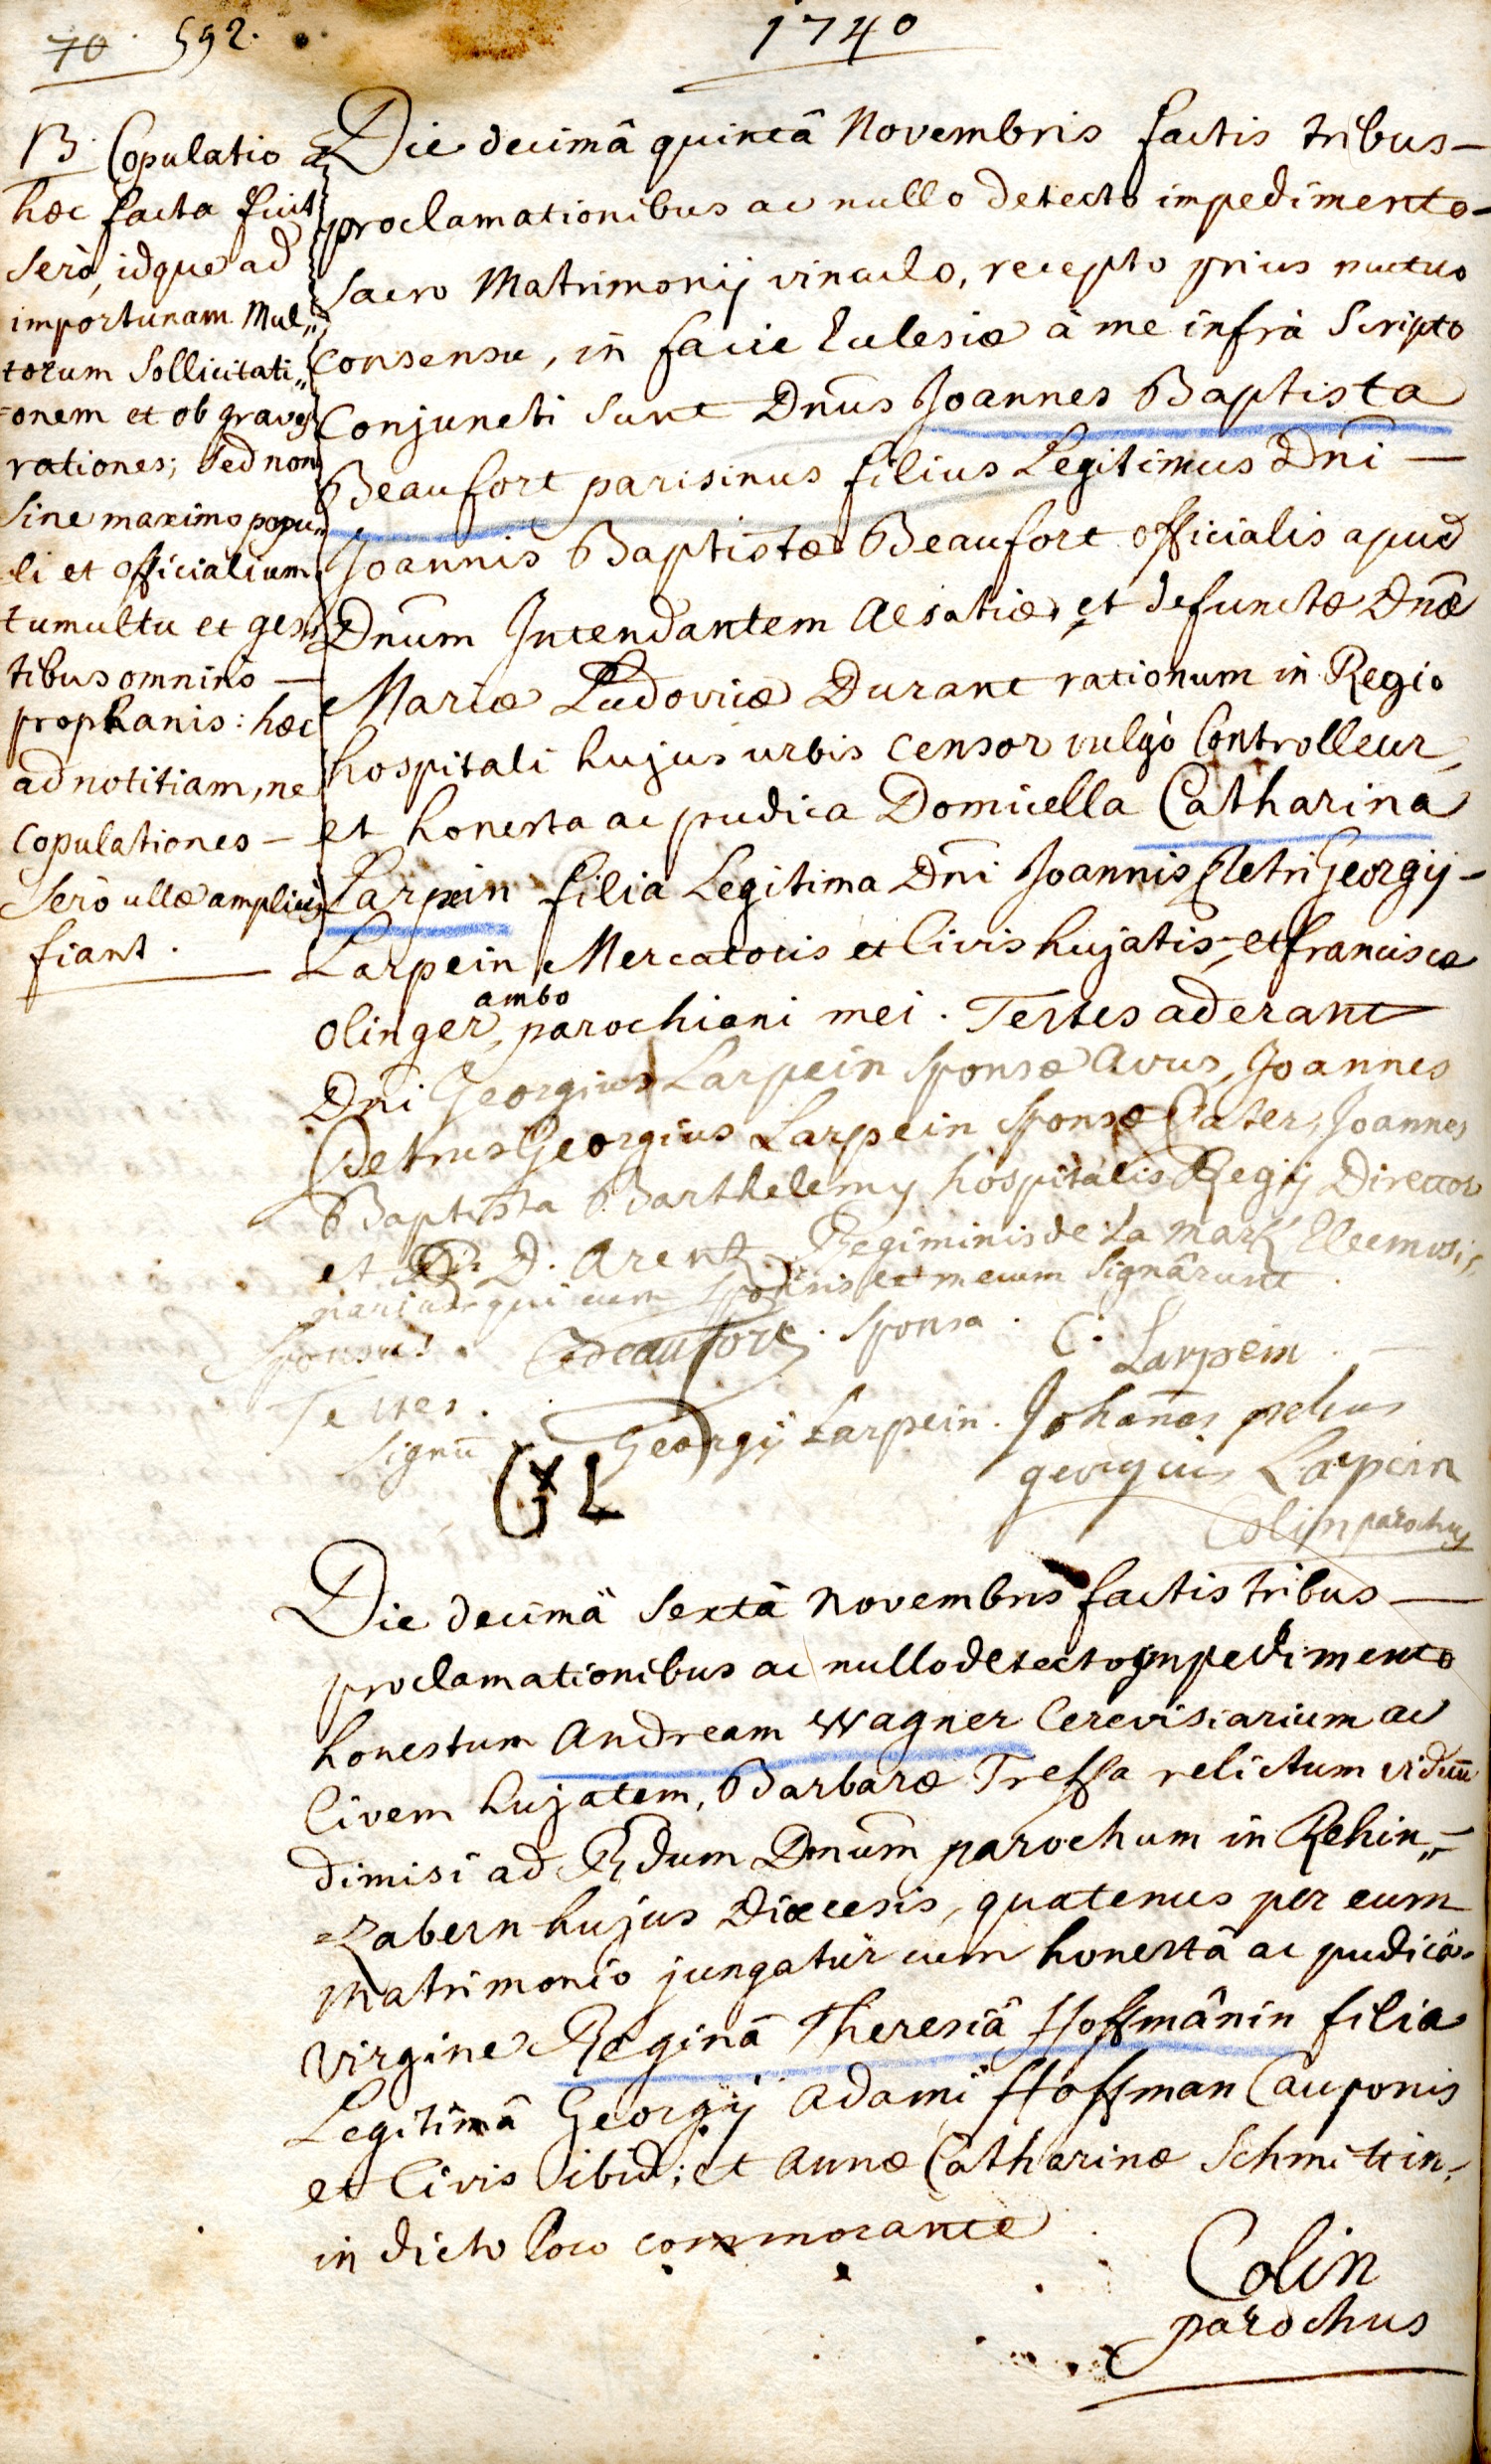 70 592.
1740
NB. Copulatio
hæc facta fuit
Serò, idque ad
importunam Mul„
torum Sollicitati„
=onem et ob graves
rationes; Sed non
Sine maximo popu„
-li et officialium
tumultu et ges„
tibus omninò —
prophanis: hæc
ad notitiam, ne
Copulationes —
Serò ullæ ampliùs
fiant.
Die decimâ quintâ Novembris factis tribus —
proclamationibus ac nullo detecto impedimento —
Sacro Matrimonij vinculo, recepto priùs mutuo
Consensu, in facie Eclesiæ à me infrà Scripto
Conjuncti Sunt Dnus Joannes Baptista
Beaufort parisinus filius Legitimus Dni —
Joannis Baptistæ Beaufort officialis apud
Dnum Intendantem Alsatiæ, et defunctæ Dnæ
Mariæ Ludovicæ Durant rationum in Regio
hospitali hujus urbis Censor vulgò Controlleur,
et honesta ac pudica Domicella Catharina
Larpein filia Legitima Dni Joannis Petri Georgij —
Larpein Mercatoris et Civis hujatis, et franciscæ
Olinger, ambo parochiani mei. Testes aderant
Dni Georgius Larpein Sponsæ Avus, Joannes
Petrus Georgius Larpein Sponsæ Pater, Joannes
Baptista Barthelemy hospitalis Regij Director
et D. Arent Regiminis de La Mark Eleemosi„
narius qui cum Sponsis et mecum Signârunt.
Sponsus. Beaufort. Sponsa. C. Larpein.
Testes.
Signū Georgij Larpein. Johanes petrus
G x L georgius Larpein
Colin parochus
Die decimâ Sextâ Novembris factis tribus —
proclamationibus ac nullo detecto impedimento
honestum Andream Wagner Cerevisiarium ac
Civem hujatem, Barbaræ Tressa relictum viduū
dimisi ad Rdum Dnum parochum in Rehin„
=Zabern hujus Diœcesis, quatenus per eum
Matrimonio jungatur cum honestâ ac pudicâ
virgine Reginâ Theresiâ Hoffmânin filia
Legitimâ Georgij Adami Hoffman Cauponis
et Civis ibid; et Annæ Catharinæ Schmittin,
in dicto loco commorante
Colin
parochus